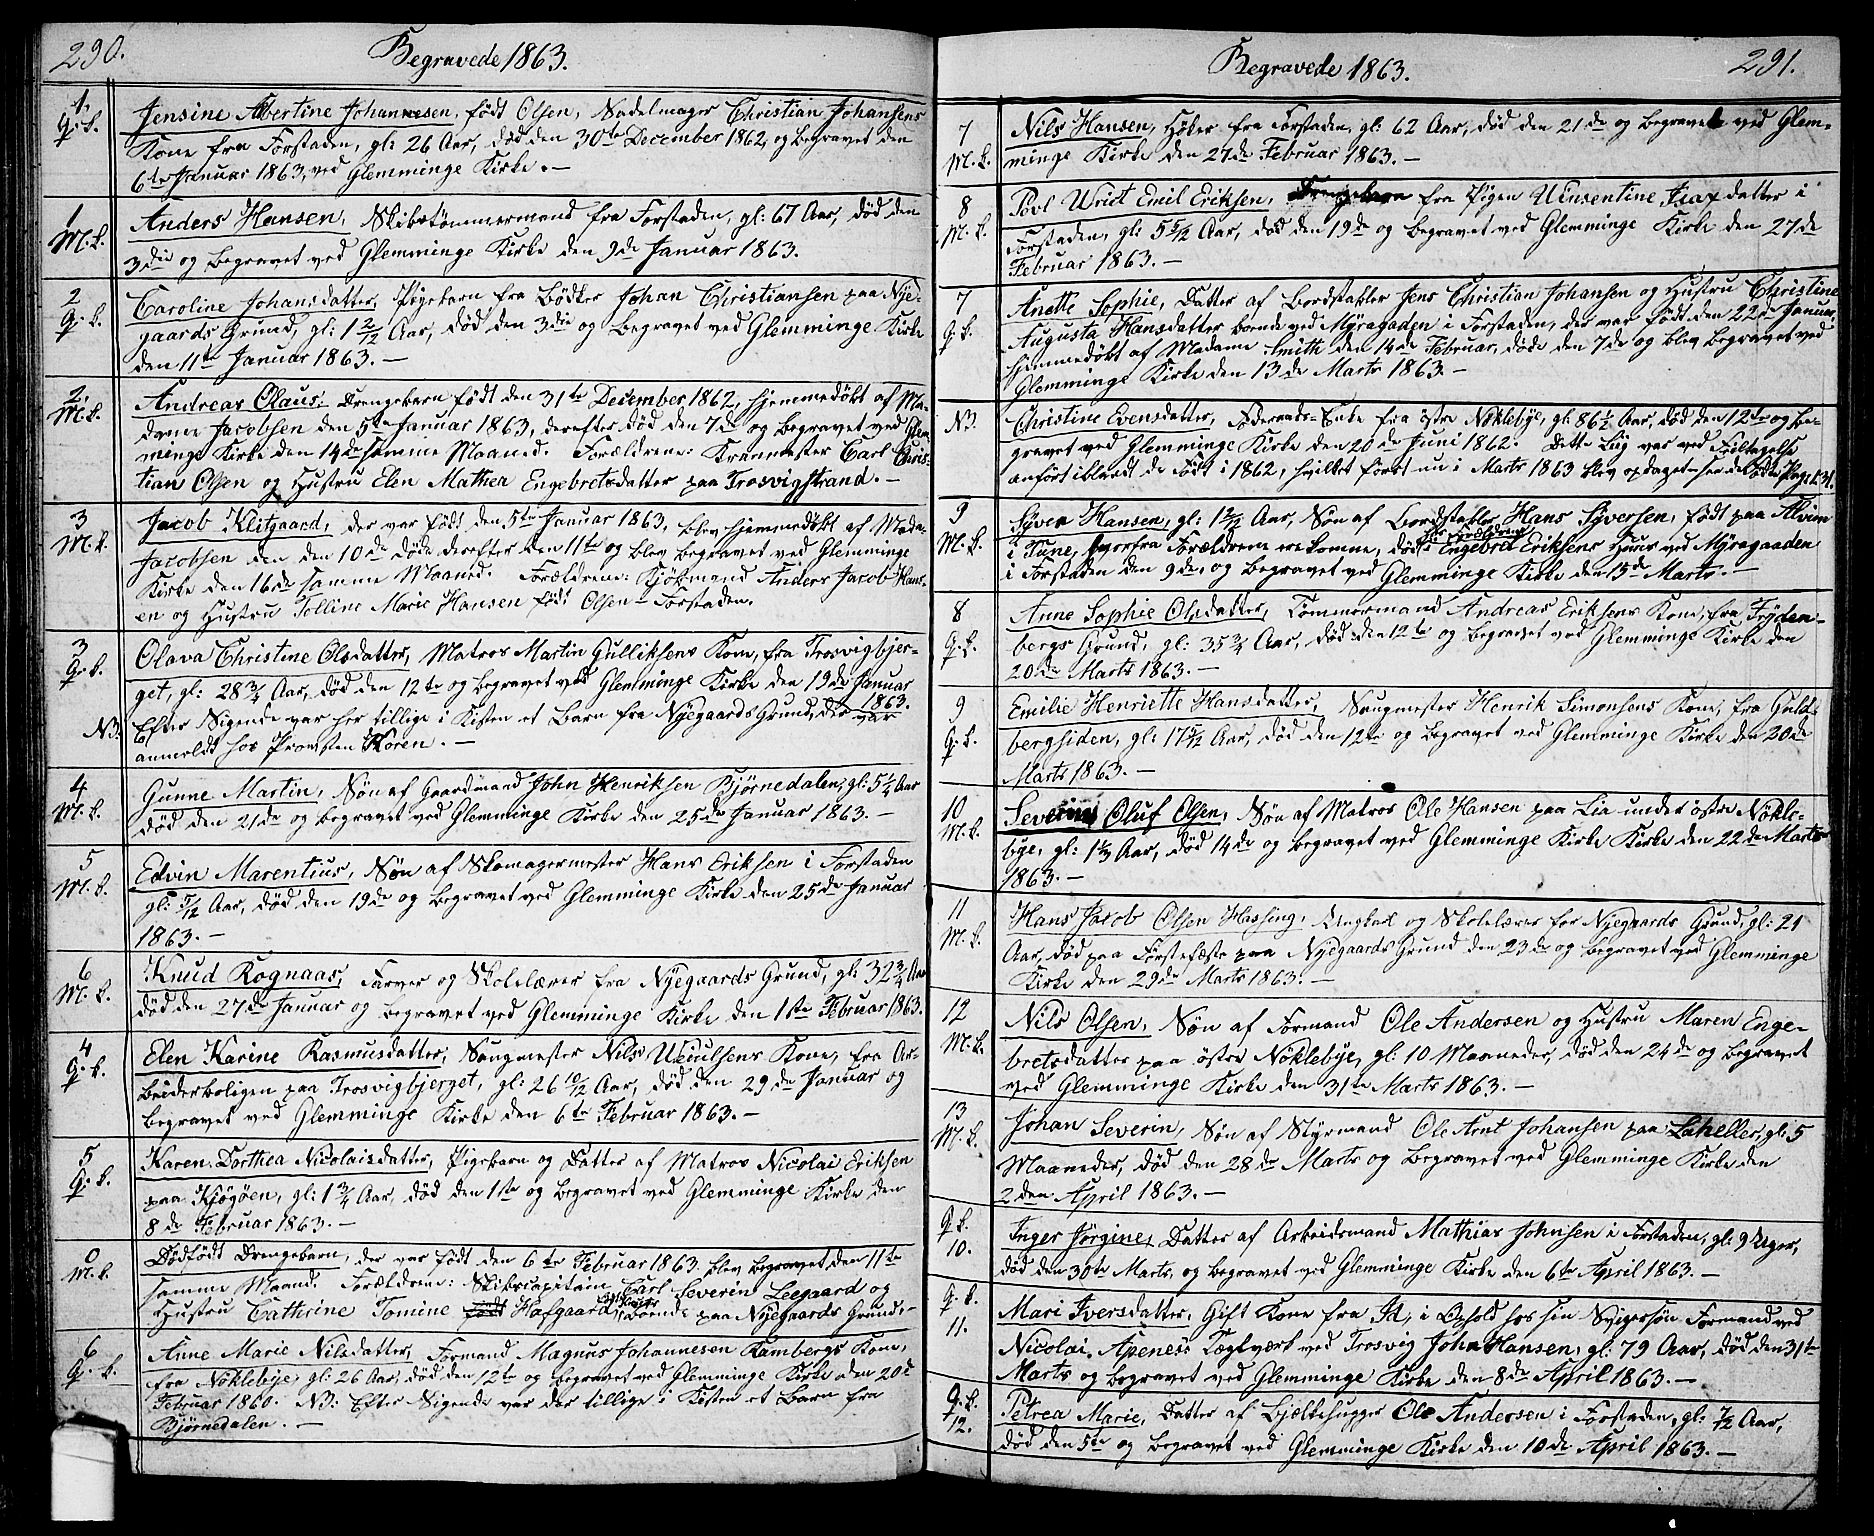 290.
Begravede 1863.
1.
Q. k.
Jensine Albertine Johannesen, født Olsen, Sadelmager Christian Johansens
Kone fra Forstaden, gl: 26 Aar, død den 30te December 1862, og begravet den
6te Januar 1863, ved Glemminge Kirke. —
1
M. k.
Anders Hansen, Skibstømmermand fra Forstaden, gl: 67 Aar, død den
3die og begravet ved Glemminge Kirke den 9de Januar 1863.
2
Q. k.
Caroline Johansdatter, Pigebarn fra Bødker Johan Christiansen paa Nye-
gaards Grund, gl: 1 2/12 Aar, død den 3die og begravet ved Glemminge Kirke
den 11te Januar 1863. —
2.
M. k.
Andreas Olaus, Drengebarn født den 31te December 1862, hjemmedøbt af Ma-
dame Jacobsen den 5te Januar 1863, derefter død den 7de og begravet ved Glem-
minge Kirke den 14de samme Maaned. Forældrene: Kranmester Carl Chris-
tian Olsen og Hustru Elen Mathea Engebretsdatter paa Trosvigstrand. —
3
M. k.
Jacob Klitgaard, der var født den 5te Januar 1863, blev hjemmedøbt af Mada-
Jacobsen den den 10de døde derefter den 11te og blev begravet ved Glemminge
Kirke den 16de samme Maaned. Forældrene: Kjøbmand Anders Jacob Hans-
en og Hustru Tolline Marie Hansen født Olsen – Forstaden.
3
Q. k.
Olava Christine Olsdatter, Matros Martin Gulliksens Kone, fra Trosvigbjer-
get, gl: 28 3/4 Aar, død den 12te og begravet ved Glemminge Kirke den 19de Januar
1863.
NB.
Efter Sigende var her tillige i Kisten et Barn fra Nyegaards Grund, der var
anmeldt hos Provsten Koren. —
4
M. k.
Gunne Martin, Søn af Gaardmand John Henriksen Bjørnedalen, gl: 5 1/4 Aar
død den 21de og begravet ved Glemminge Kirke den 25de Januar 1863. —
5
M. k.
Edvin Marentius, Søn af Skomagermester Hans Eriksen i Forstaden
gl: 5/12 Aar, død den 19de og begravet ved Glemminge Kirke den 25de Januar
1863. —
6
M. k.
Knud Rognaas, Farver og Skolelærer fra Nyegaards Grund, gl: 32 3/4 Aar
død den 27de Januar og begravet ved Glemminge Kirke den 1ste Februar 1863.
4
Q. k.
Elen Karine Rasmusdatter, Saugmester Nils Kone, fra Ar-
beiderboligen paa Trosvigbjerget, gl: 26 10/12 Aar, død den 29de Januar og
begravet ved Glemminge Kirke den 6te Februar 1863. —
5
Q. k.
Karen Dorthea Nicolaisdatter, Pigebarn og Datter af Matros Nicolai Eriksen
paa Kjøgøen, gl: 1 3/4 Aar, død den 1ste og begravet ved Glemminge Kirke den
8de Februar 1863. —
0
M. k.
Dødfødt Drengebarn, der var født den 6te Februar 1863 blev begravet den 11te
samme Maaned. Forældrene: Skibscapitain Carl Severin Leegaard og
Hustru Cathrine Tomine født Hafgaard, boende paa Nyegaards Grund. —
6
Q. k.
Anne Marie Nilsdatter, Formand Magnus Johannesen Kambergs Kone,
fra Nøklebye, gl: 26 Aar, død den 12te og begravet ved Glemminge Kirke den 20de
Februar 1860. NB: Efter Sigende var der tillige i Kisten et Barn fra
Bjørnedalen. —
Begravede 1863.
291.
7
M. k.
Nils Hansen, Høker fra Forstaden, gl: 62 Aar, død den 21de og begravet ved Glem-
minge Kirke den 27de Februar 1863. —
8
M. k.
Povl Emil Eriksen, Drengebarn fra Pigen Isaxdatter i
Forstaden, gl: 5 5/12 Aar, død den 19de og begravet ved Glemminge Kirke den 27de
Februar 1863. —
7
Q. k.
Anette Sophie, Datter af Bordstabler Jens Christian Johansen og Hustru Christine
Augusta Hansdatter boende ved Myragaden i Forstaden, der var født den 22de Januar,
hjemmedøbt af Madame Smith den 14de Februar, døde den 7de og blev begravet ved
Glemminge Kirke den 13de Marts 1863. —
NB.
Christine Evensdatter, Føderaads-Enke fra østre Nøklebye, gl: 86 1/2 Aar, død den 12te og be-
gravet ved Glemminge Kirke den 20de Juni 1862. Dette Liig var ved Feiltagelse
anført iblandt de Født i 1862, hvilket først nu i Marts 1863 blev opdaget – see
9
M. k.
Syver Hansen, gl: 1 2/12 Aar, Søn af Bordstabler Hans Syversen, født paa Alvim
i Tune, hvorfra Forældrene ere komne, død i Engebret Eriksens Huus ved Myragaaden
i Forstaden den 9de, og begravet ved Glemminge Kirke den 15de Marts. —
8
Q. k.
Anne Sophie Olsdatter, Tømmermand Andreas Eriksens Kone, fra Fryden-
bergs Grund, gl: 35 3/4 Aar, død den 12te og begravet ved Glemminge Kirke den
20de Marts 1863. —
9
Q. k.
Emilie Henriette Hansdatter, Saugmester Henrik Simonsens Kone, fra Guld-
bergsiden, gl: 17 5/12 Aar, død den 12te og begravet ved Glemminge Kirke den 20de
Marts 1863. —
10
M. k.
Severin Oluf Olsen, Søn af Matros Ole Hansen paa Lia under østre Nøkle-
bye, gl: 1 1/4 Aar, død 14de og begravet ved Glemminge Kirke Kirke den 22de Marts
1863. —
11
M. k.
Hans Jacob Olsen Hassing, Ungkarl og Skolelærer for Nyegaards Grund, gl: 21
Aar, død paa Førstefæste paa Nyegaards Grund den 23de og begravet ved Glemminge
Kirke den 29de Marts 1863. —
12
M. k.
Nils Olsen, Søn af Formand Ole Andersen og Hustru Maren Enge-
bretsdatter paa østre Nøklebye, gl: 10 Maaneder, død den 24de og begravet
ved Glemminge Kirke den 31te Marts 1863. —
13
M. k.
Johan Severin, Søn af Styrmand Ole Arnt Johansen paa Laheller, gl: 5
Maaneder, død den 28de Marts og begravet ved Glemminge Kirke den
2den April 1863. —
Q. k.
10.
Inger Jørgine, Datter af Arbeidsmand Mathias Johnsen i Forstaden, gl: 9 Uger,
død den 30te Marts, og begravet ved Glemminge Kirke den 6te April 1863. —
Q. k.
11.
Mari Iversdatter, Gift Kone fra Id, i Ophold hos sin Svigersøn Formand ved
Nicolai Apeness Teglværk ved Trosvig John Hansen, gl: 79 Aar, død den 31te
Marts og begravet ved Glemminge Kirke den 8de April 1863. —
Q. k.
12.
Petrea Marie, Datter af Bjelkehugger Ole Andersen i Forstaden, gl: 7/12 Aar,
død den 5te og begravet ved Glemminge Kirke den 10de April 1863. —